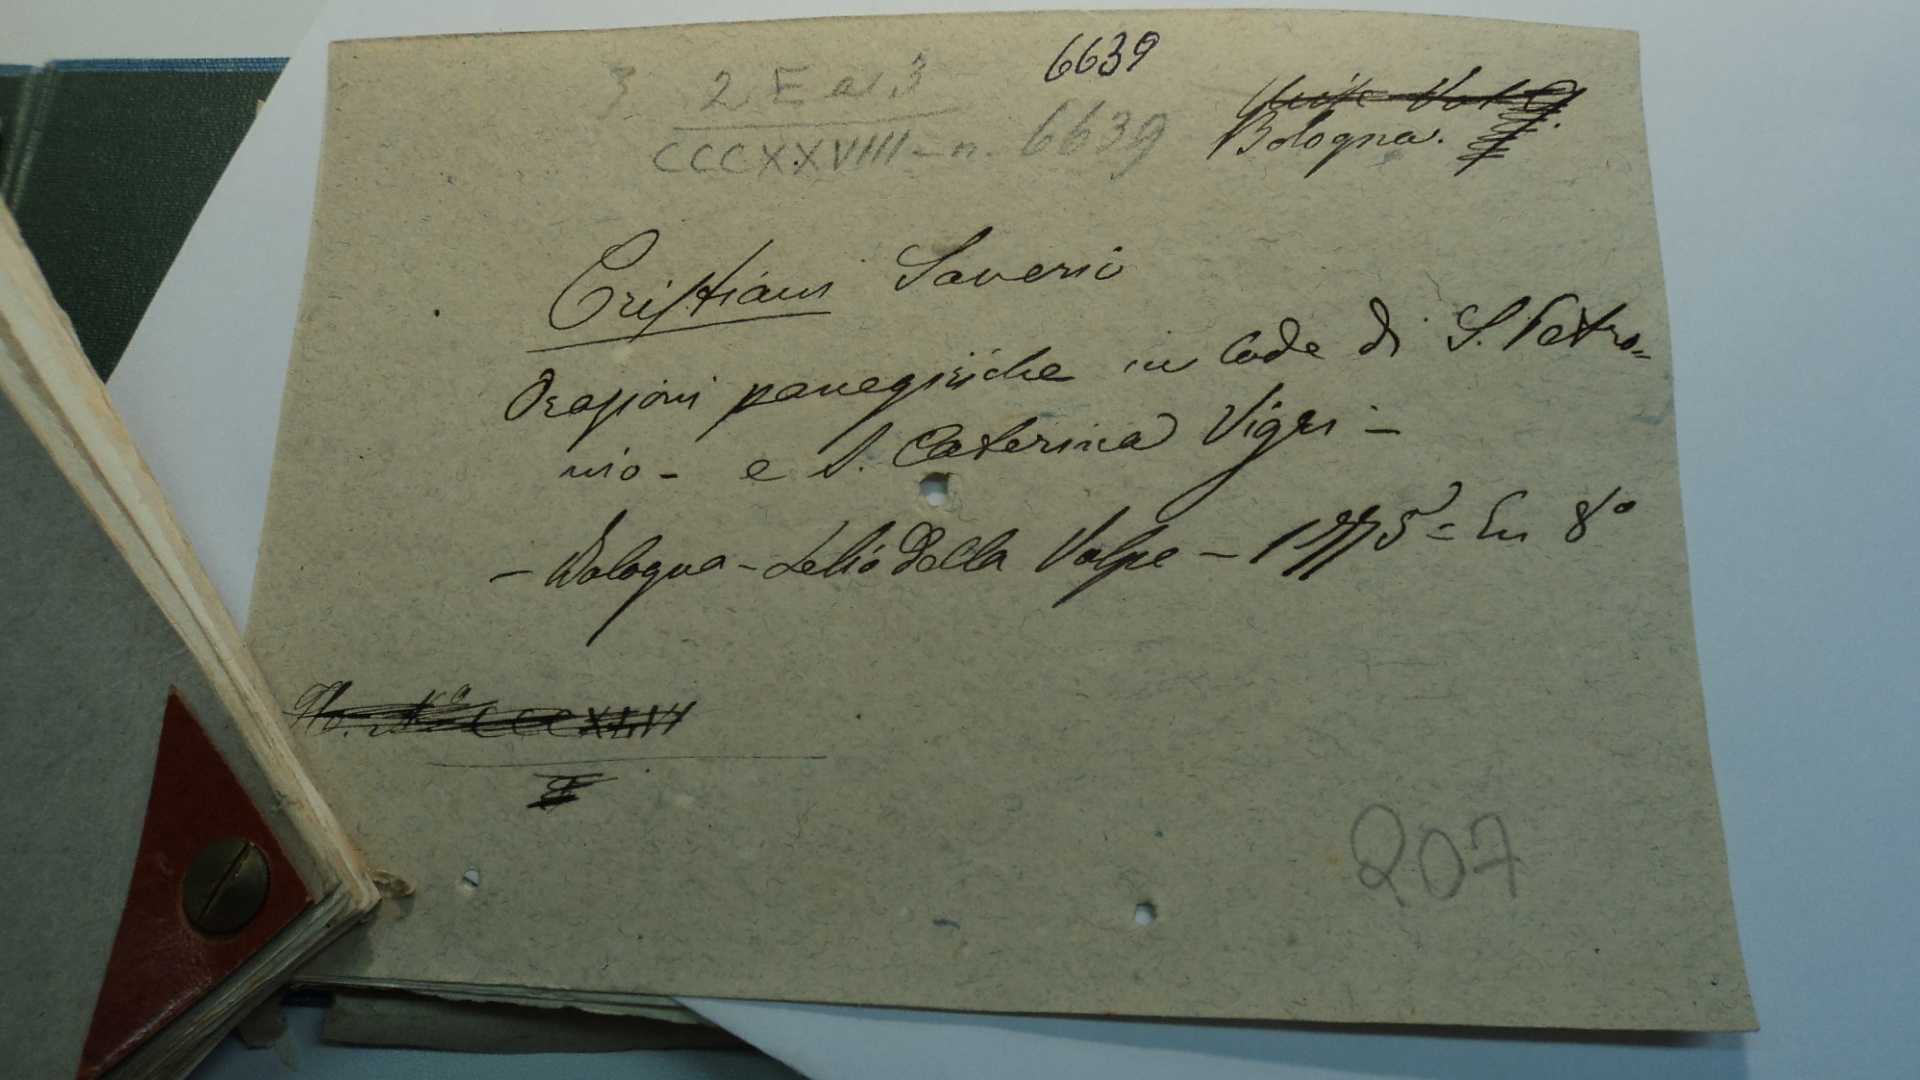 6639
3 2 E a. 3
CCCXXVIII - n. 6639
Bologna.
Cristiani Saverio
Orazioni panegiriche in lode di S. Petro=
nio - e S. Caterina Vigri -
- Bologna - Lelio della Volpe - 1775 = In 8°
207